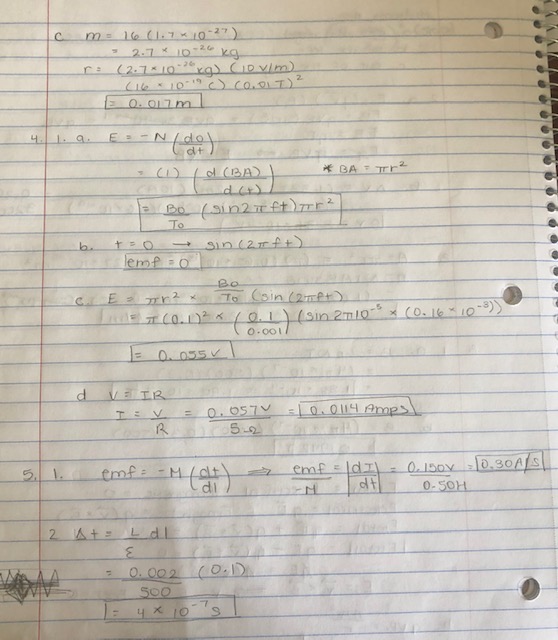 c m = 16 (1.7 × 10^-27)
= 2.7 × 10^-26 kg
r = (2.7 × 10^-26 kg) (10 v/m)
(16 × 10^-19 C) (0.01T)^2
= 0.017m
4. 1. a. E = -N (dΦ/dt)
= (1) (d (BA)/d(t)) * BA = πr^2
= Bo/To (sin2πft)πr^2
b. t = 0 → sin(2πft)
emf = 0
c. E = πr^2 × Bo/To (sin(2πft)
= π(0.1)^2 × (0.1/0.001) (sin 2π10^-3 × (0.16 × 10^-3))
= 0.055v
d V = IR
I = V/R = 0.057V/5Ω = 0.0114 Amps
5. 1. emf = -M (dt/dI) ⇒ emf/-M = |dI/dt| = 0.150V/0.50H = 0.30A/S
2 Δt = L dI
ε
= 0.002/500 (0.1)
= 4 × 10^-7 s